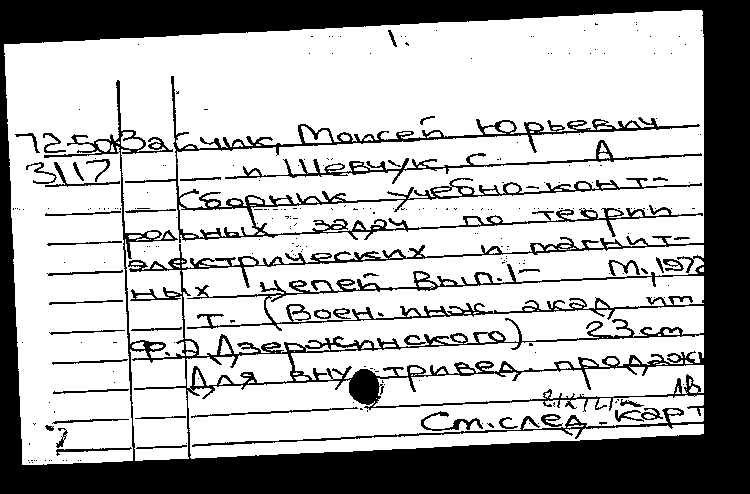 1.
72-50к Зайчик, Моисей Юрьевич
3117 и Шевчук, С. А
Сборник учебно-конт-
рольных задач по теории
электрических и магнит-
ных цепей. Вып.1- М., 1972
т. (Воен. инж. акад. им.
Ф.Э.Дзержинского). 23 cm
Для внутривед. продажи
1в
См. след. карт
2